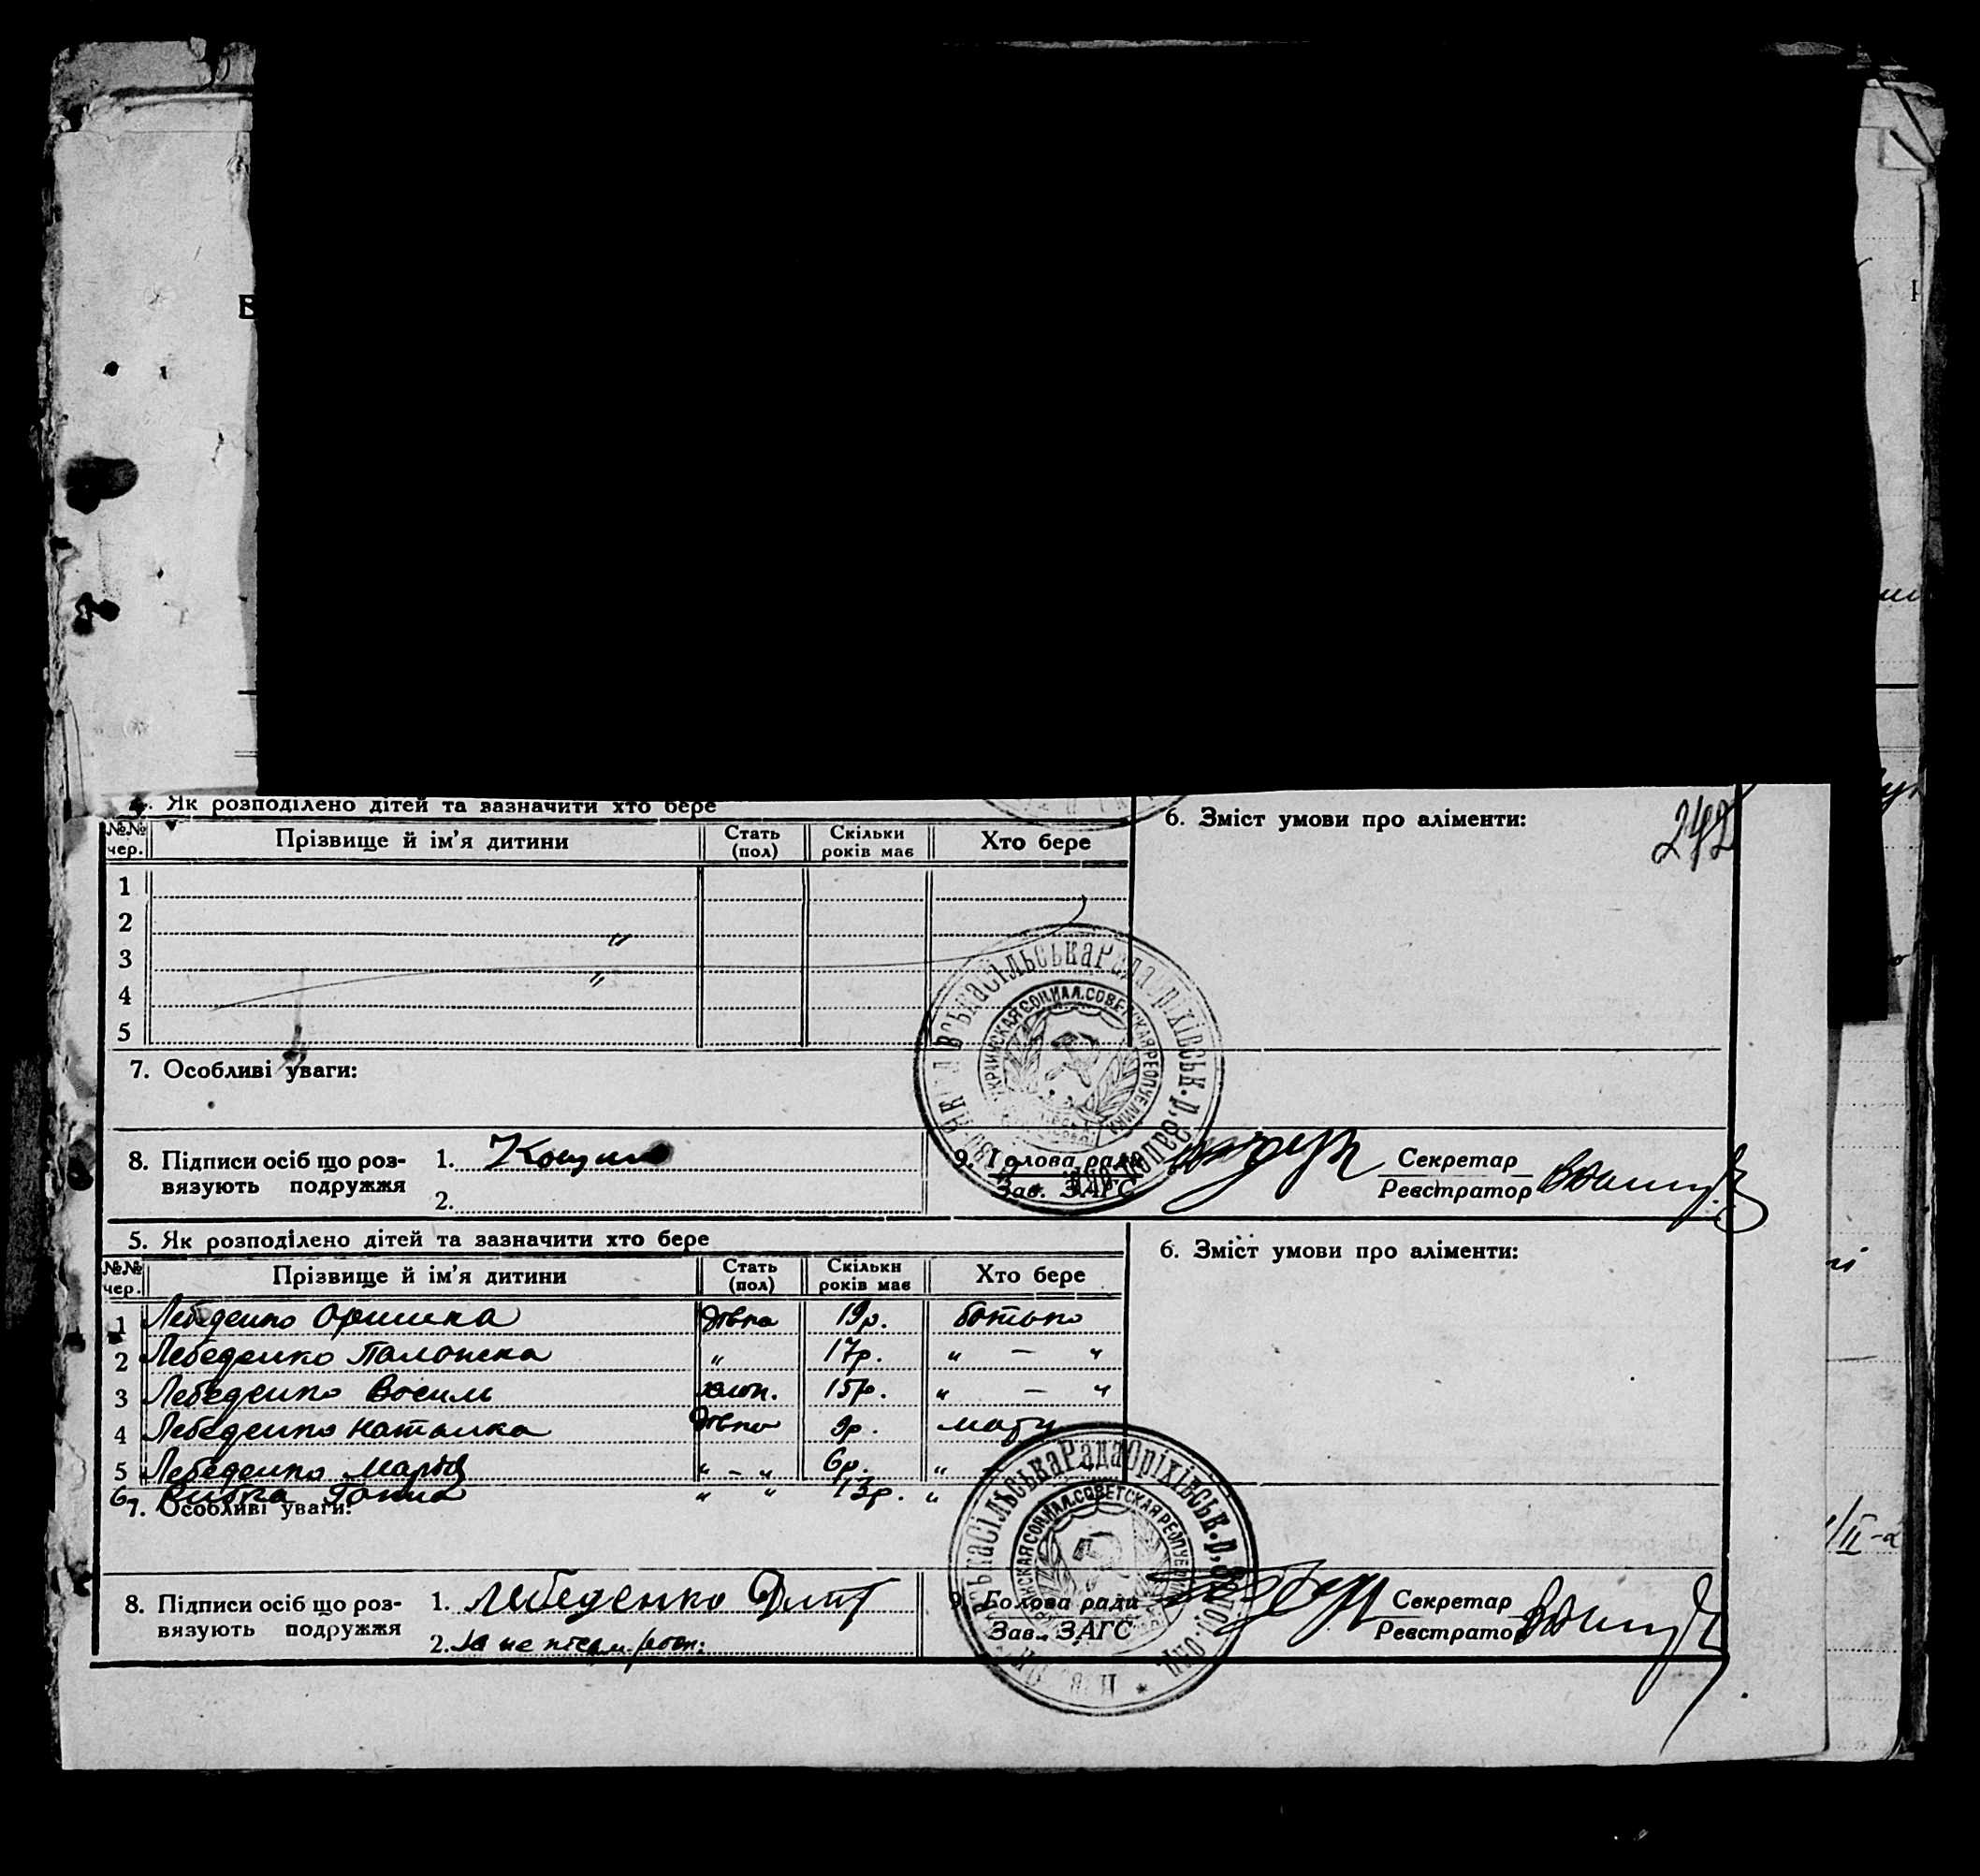 5. Як розподілено дітей та зазначити хто бере
6. Зміст умови про аліменти:
242
№№ чер. Прізвище й ім'я дитини Стать (пол) Скільки років має Хто бере
1
2 "
3 "
4
5
7. Особливі уваги:
8. Підписи осіб що роз-
вязують подружжя
1.
2.
9. Голова ради
Зав. ЗАГС
Секретар
Реєстратор
5. Як розподілено дітей та зазначити хто бере
6. Зміст умови про аліменти:
№№ чер. Прізвище й ім'я дитини Стать (пол) Скільки років має Хто бере
1 Лебеденко Оришка дівка 19р. батько
2 Лебеденко Палашка " 17р. " — "
3 Лебеденко Василь хлоп. 15р. " — "
4 Лебеденко Наталка дівка 9р. мати
5 Лебеденко Марія " - " 6р. " -
6 Ганна " " 13р. "
7. Особливі уваги:
8. Підписи осіб що роз-
вязують подружжя
1. Лебеденко Дмит
2. За не письм.
9. Голова ради
Зав. ЗАГС
Секретар
Реєстратор
Сільська Рада Оріхівськ. р. Запор. окр.
УКРАИНСКАЯ СОЦИАЛ. СОВЕТСКАЯ РЕСПУБЛИКА
Сільська Рада Оріхівськ. р. Запор. окр.
УКРАИНСКАЯ СОЦИАЛ. СОВЕТСКАЯ РЕСПУБЛИКА